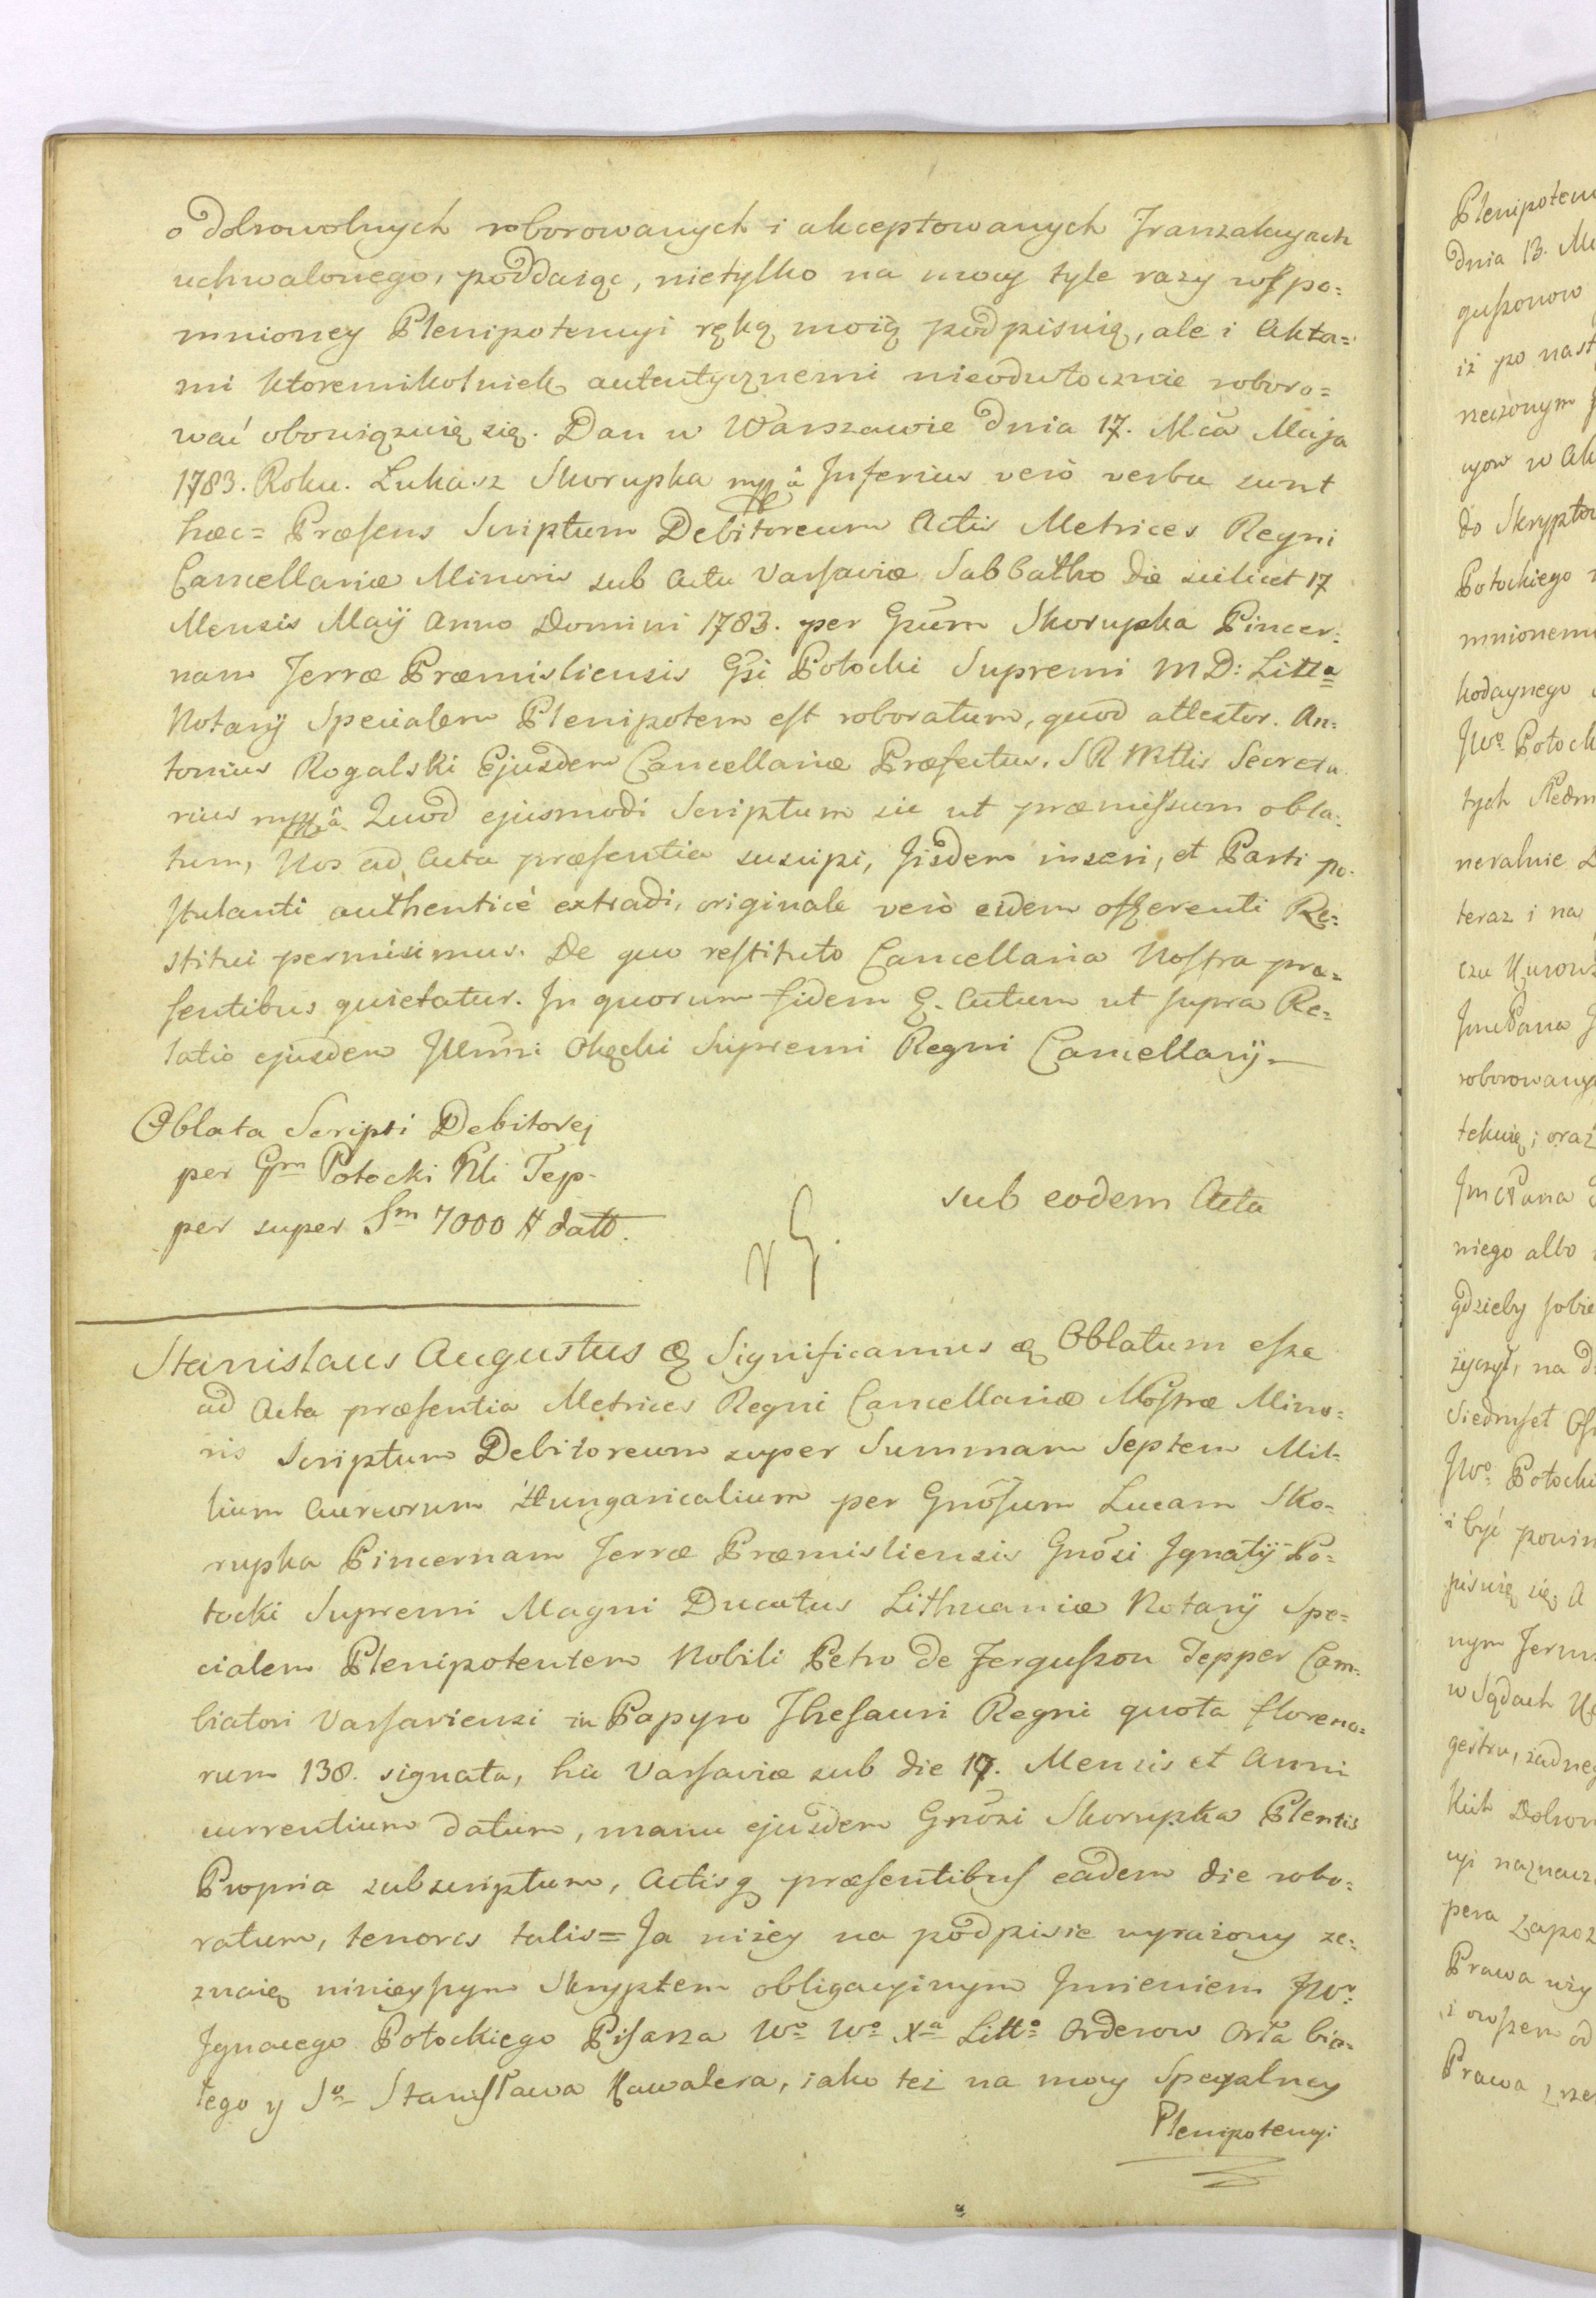 o dobrowolnych roborowanych i akceptowanych Tranzakcyach
uchwalonego, poddaiąc, nietylko na mocy tyle razy wspo=
mnioney Plenipotencyi ręką moią podpisuię, ale i Akta=
mi ktoremikolwiek autentycznemi nieodwłocznie roboro=
wać obowiązuię się. Dan w Warszawie Dnia 17. Mca Maja
1783. Roku. Łukasz Skorupka mppâ Inferius verò verba sunt
hæc= Præsens Scriptum Debitoreum Actis Metrices Regni
Cancellariæ Minoris sub Actu Varsaviæ Sabbatho die scilicet 17
Mensis Maÿ Anno Domini 1783. per Gsum Skorupka Pincer=
nam Terræ Præmisliensis Gsi Potocki Supremi M D: Litta
Notarÿ Specialem Plenipotem est roboratum, quod attestor. An=
tonius Rogalski Ejusdem Cancellariæ Præfectus. S R Mttis Secreta
rius mppâ Quod ejusmodi Scriptum sic ut præmissum obla=
tum, Nos ad Acta præsentia suscipi, Iisdem inseri, et Parti po=
stulanti authenticè extradi, originale verò eidem offerenti Re=
stitui permisimus. De quo restituto Cancellaria Nostra præ=
sentibus quietatur. In quorum fidem &. Actum ut supra Re=
latio ejusdem Illmi Okęcki Supremi Regni Cancellarÿ=
Oblata Scripti Debitorej
per Gm Potocki Nli Tep-
per super Sm 7000 # dato.
sub eodem Acta
Stanislaus Augustus & Significamus & Oblatum esse
ad Acta præsentia Metrices Regni Cancellariæ Nostræ Mino=
ris Scriptum Debitoreum super Summam Septem Mil=
lium Aureorum Hungaricalium per Gnosum Lucam Sko=
rupka Pincernam Terræ Præmisliensis Gnosi Ignatÿ Po=
tocki Supremi Magni Ducatus Lithuaniæ Notarÿ Spe=
cialem Plenipotentem Nobili Petro de Fergusson Tepper Cam=
biatori Varsaviensi in Papyro Thesauri Regni quota floreno=
rum 138. signata, hic Varsaviæ sub die 17. Mensis et Anni
currentium datum, manu ejusdem Gnosi Skorupka Plentis
Propria subscriptum, Actisq præsentibus eadem die robo=
ratum, tenoris talis= Ja niżey na podpisie wyrażony ze=
znaię ninieyszym Skryptem obligacyinym Imieniem JWo
Ignacego Potockiego Pisarza Wo Wo Xa Litto Orderow Orła bia=
łego y So Stanisława Kawalera, iako też na mocy Specyalney
Plenipotencyi
Plenipoten
Dnia 13.
iż po nast
do Skryptow
Potockiego
mnionemu
JWo Potock
teraz i na
niego albo
gdzieby sobie
życzył, na
JWo Potocki
i być powin
pisuię się. A
w Sądach